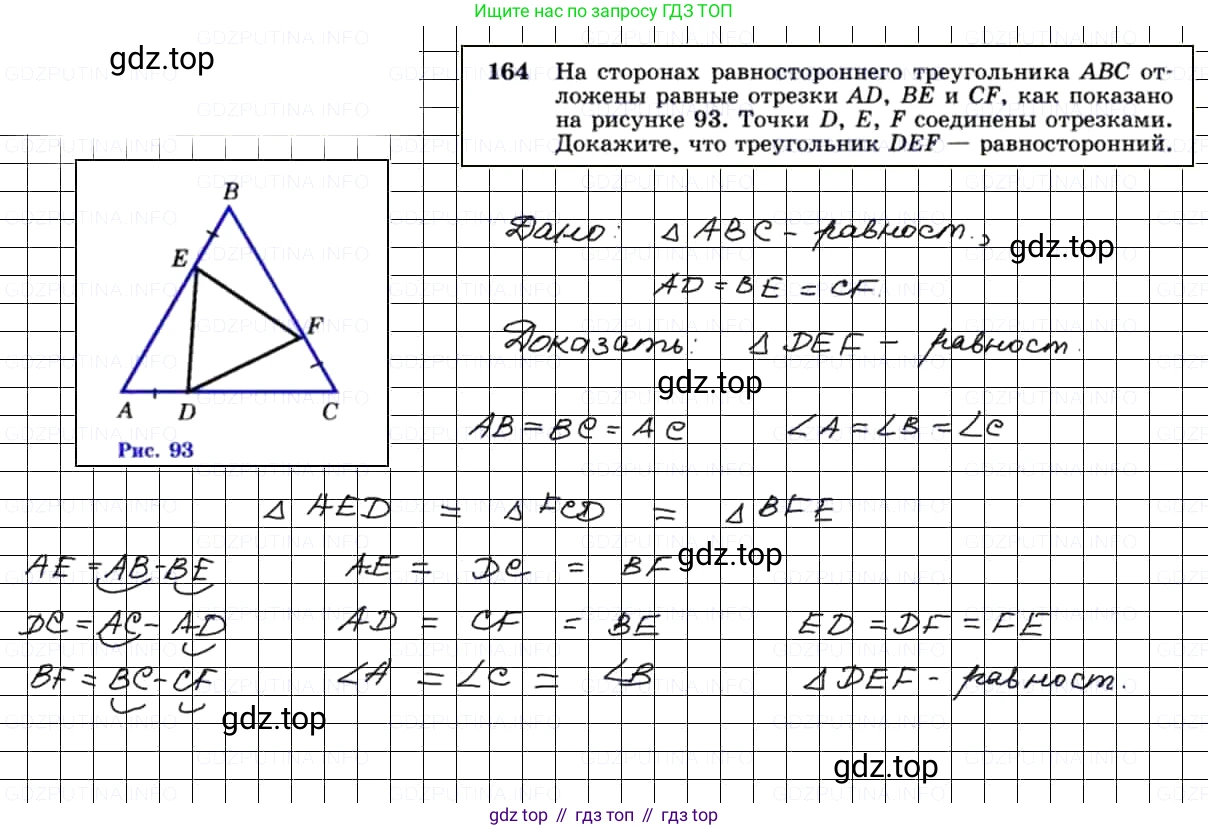 Ищите нас по запросу ГДЗ ТОП
GDZPUTINA.INFO
gdz.top
164 На сторонах равностороннего треугольника ABC от-
ложены равные отрезки AD, BE и CF, как показано
на рисунке 93. Точки D, E, F соединены отрезками.
Докажите, что треугольник DEF — равносторонний.
B
E
F
A D C
Рис. 93
Дано: △ ABC - равност.,
gdz.top
AD = BE = CF.
Доказать: △ DEF - равност.
gdz.top
AB = BC = AC ∠A = ∠B = ∠C
△ AED = △ FCD = △ BFE
AE = AB - BE AE = DC = BF
gdz.top
DC = AC - AD AD = CF = BE ED = DF = FE
BF = BC - CF ∠A = ∠C = ∠B △ DEF - равност.
gdz.top
gdz.top
gdz top // гдз топ // gdz top